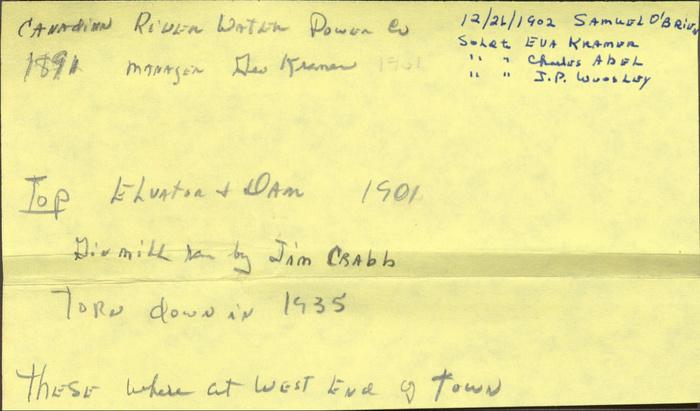 Canadian River Water Power Co
1891 manager Geo Kramer 1901
12/26/1902 Samuel O'Brien
Solat Eva Kramer
" " Charles Abel
" " J.P. Woosley
Top Elvator & Dam 1901
Ginmill ran by Jim Crabb
Torn down in 1935
These where at West End of Town